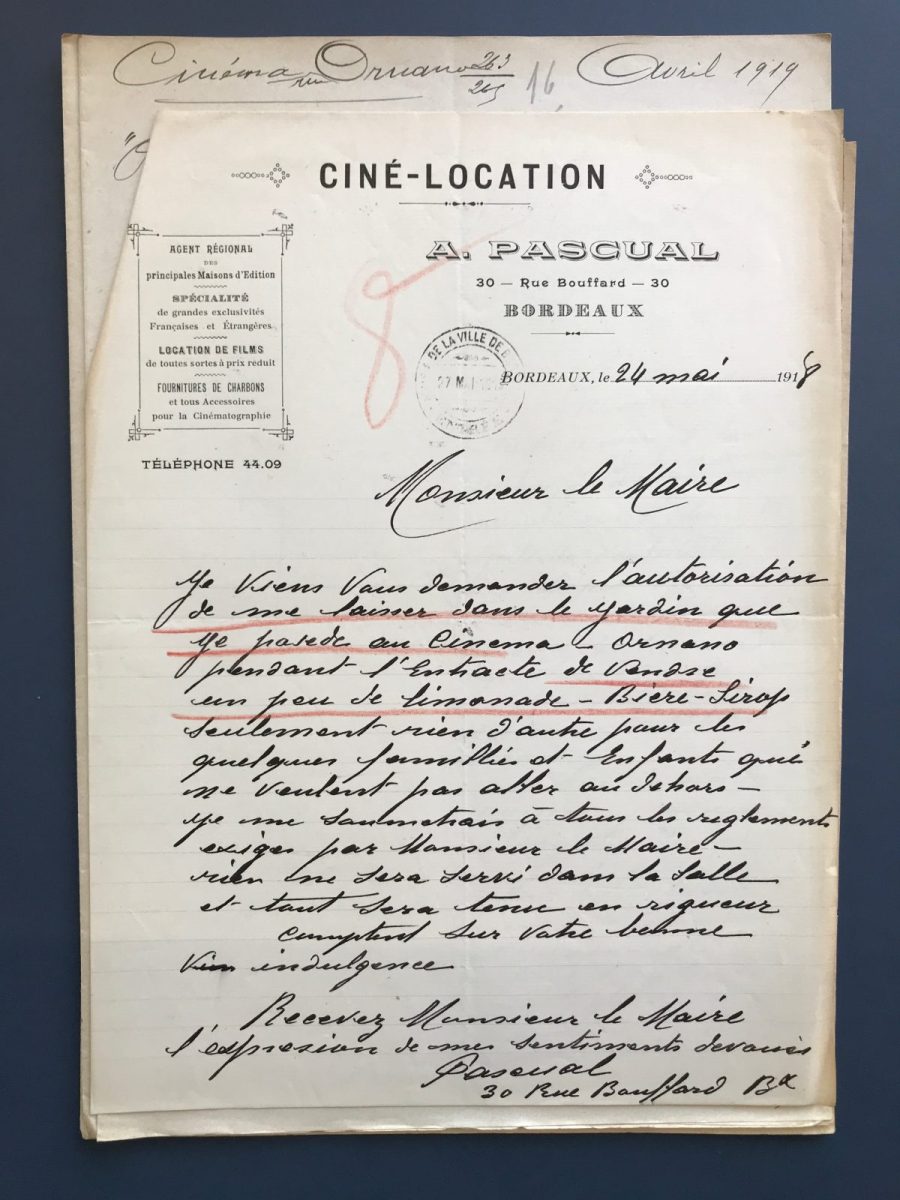 Cinéma rue Ornano 263/265 16 Avril 1919
CINÉ-LOCATION
A. PASCUAL
30 — Rue Bouffard — 30
BORDEAUX
AGENT RÉGIONAL
DES
principales Maisons d'Edition
SPÉCIALITÉ
de grandes exclusivités
Françaises et Étrangères
LOCATION DE FILMS
de toutes sortes à prix reduit
FOURNITURES DE CHARBONS
et tous Accessoires
pour la Cinématographie
TÉLÉPHONE 44.09
8
DE LA VILLE DE B
27 MAI
BORDEAUX, le 24 mai 1918
Monsieur le Maire
Je viens vous demander l'autorisation
de me laisser dans le jardin que
je posede au Cinema - Ornano
pendant l'Entracte de vendre
un peu de limonade - Bière - Sirop
seulement rien d'autre pour les
quelques familles et Enfants qui
ne veulent pas aller au dehors -
je me soumetrais à tous les reglements
exiges par Monsieur le Maire -
rien ne sera servi dans la salle
et tout sera tenu en rigueur
comptent sur votre bonne
indulgence
Recevez Monsieur le Maire
l'expresion de mes sentiments devoués
Pascual
30 Rue Bouffard Bx